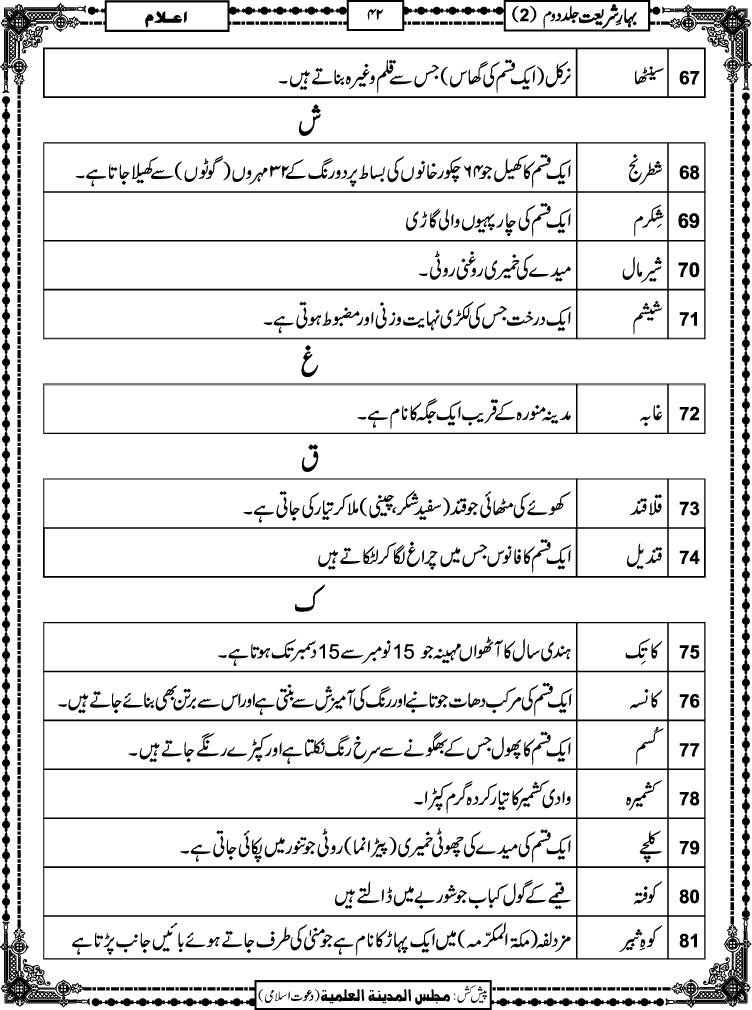 بہارِ شریعت جلد دوم (2)
۴۲
اعلام
67 سینٹھا نرکل (ایک قسم کی گھاس) جس سے قلم وغیرہ بناتے ہیں۔
ش
68 شطرنج ایک قسم کا کھیل جو ۶۴ چکور خانوں کی بساط پر دو رنگ کے ۳۲ مہروں (گوٹوں) سے کھیلا جاتا ہے۔
69 شِکرم ایک قسم کی چار پہیوں والی گاڑی
70 شیر مال میدے کی خمیری روغنی روٹی۔
71 شیشم ایک درخت جس کی لکڑی نہایت وزنی اور مضبوط ہوتی ہے۔
غ
72 غابہ مدینہ منورہ کے قریب ایک جگہ کا نام ہے۔
ق
73 قلاقند کھوئے کی مٹھائی جو قند (سفید شکر، چینی) ملا کر تیار کی جاتی ہے۔
74 قندیل ایک قسم کا فانوس جس میں چراغ لگا کر لٹکاتے ہیں
ک
75 کاتِک ہندی سال کا آٹھواں مہینہ جو 15 نومبر سے 15 دسمبر تک ہوتا ہے۔
76 کانسہ ایک قسم کی مرکب دھات جو تانبے اور رنگ کی آمیزش سے بنتی ہے اور اس سے برتن بھی بنائے جاتے ہیں۔
77 کُسم ایک قسم کا پھول جس کے بھگونے سے سرخ رنگ نکلتا ہے اور کپڑے رنگے جاتے ہیں۔
78 کشمیرہ وادی کشمیر کا تیار کردہ گرم کپڑا۔
79 کلچے ایک قسم کی میدے کی چھوٹی خمیری (پیڑا نما) روٹی جو تنور میں پکائی جاتی ہے۔
80 کوفتہ قیمے کے گول کباب جو شوربے میں ڈالتے ہیں
81 کوہِ ثبیر مزدلفہ (مکۃ المکرّمہ) میں ایک پہاڑ کا نام ہے جو منیٰ کی طرف جاتے ہوئے بائیں جانب پڑتا ہے
پیش کش: مجلس المدینة العلمیة (دعوت اسلامی)